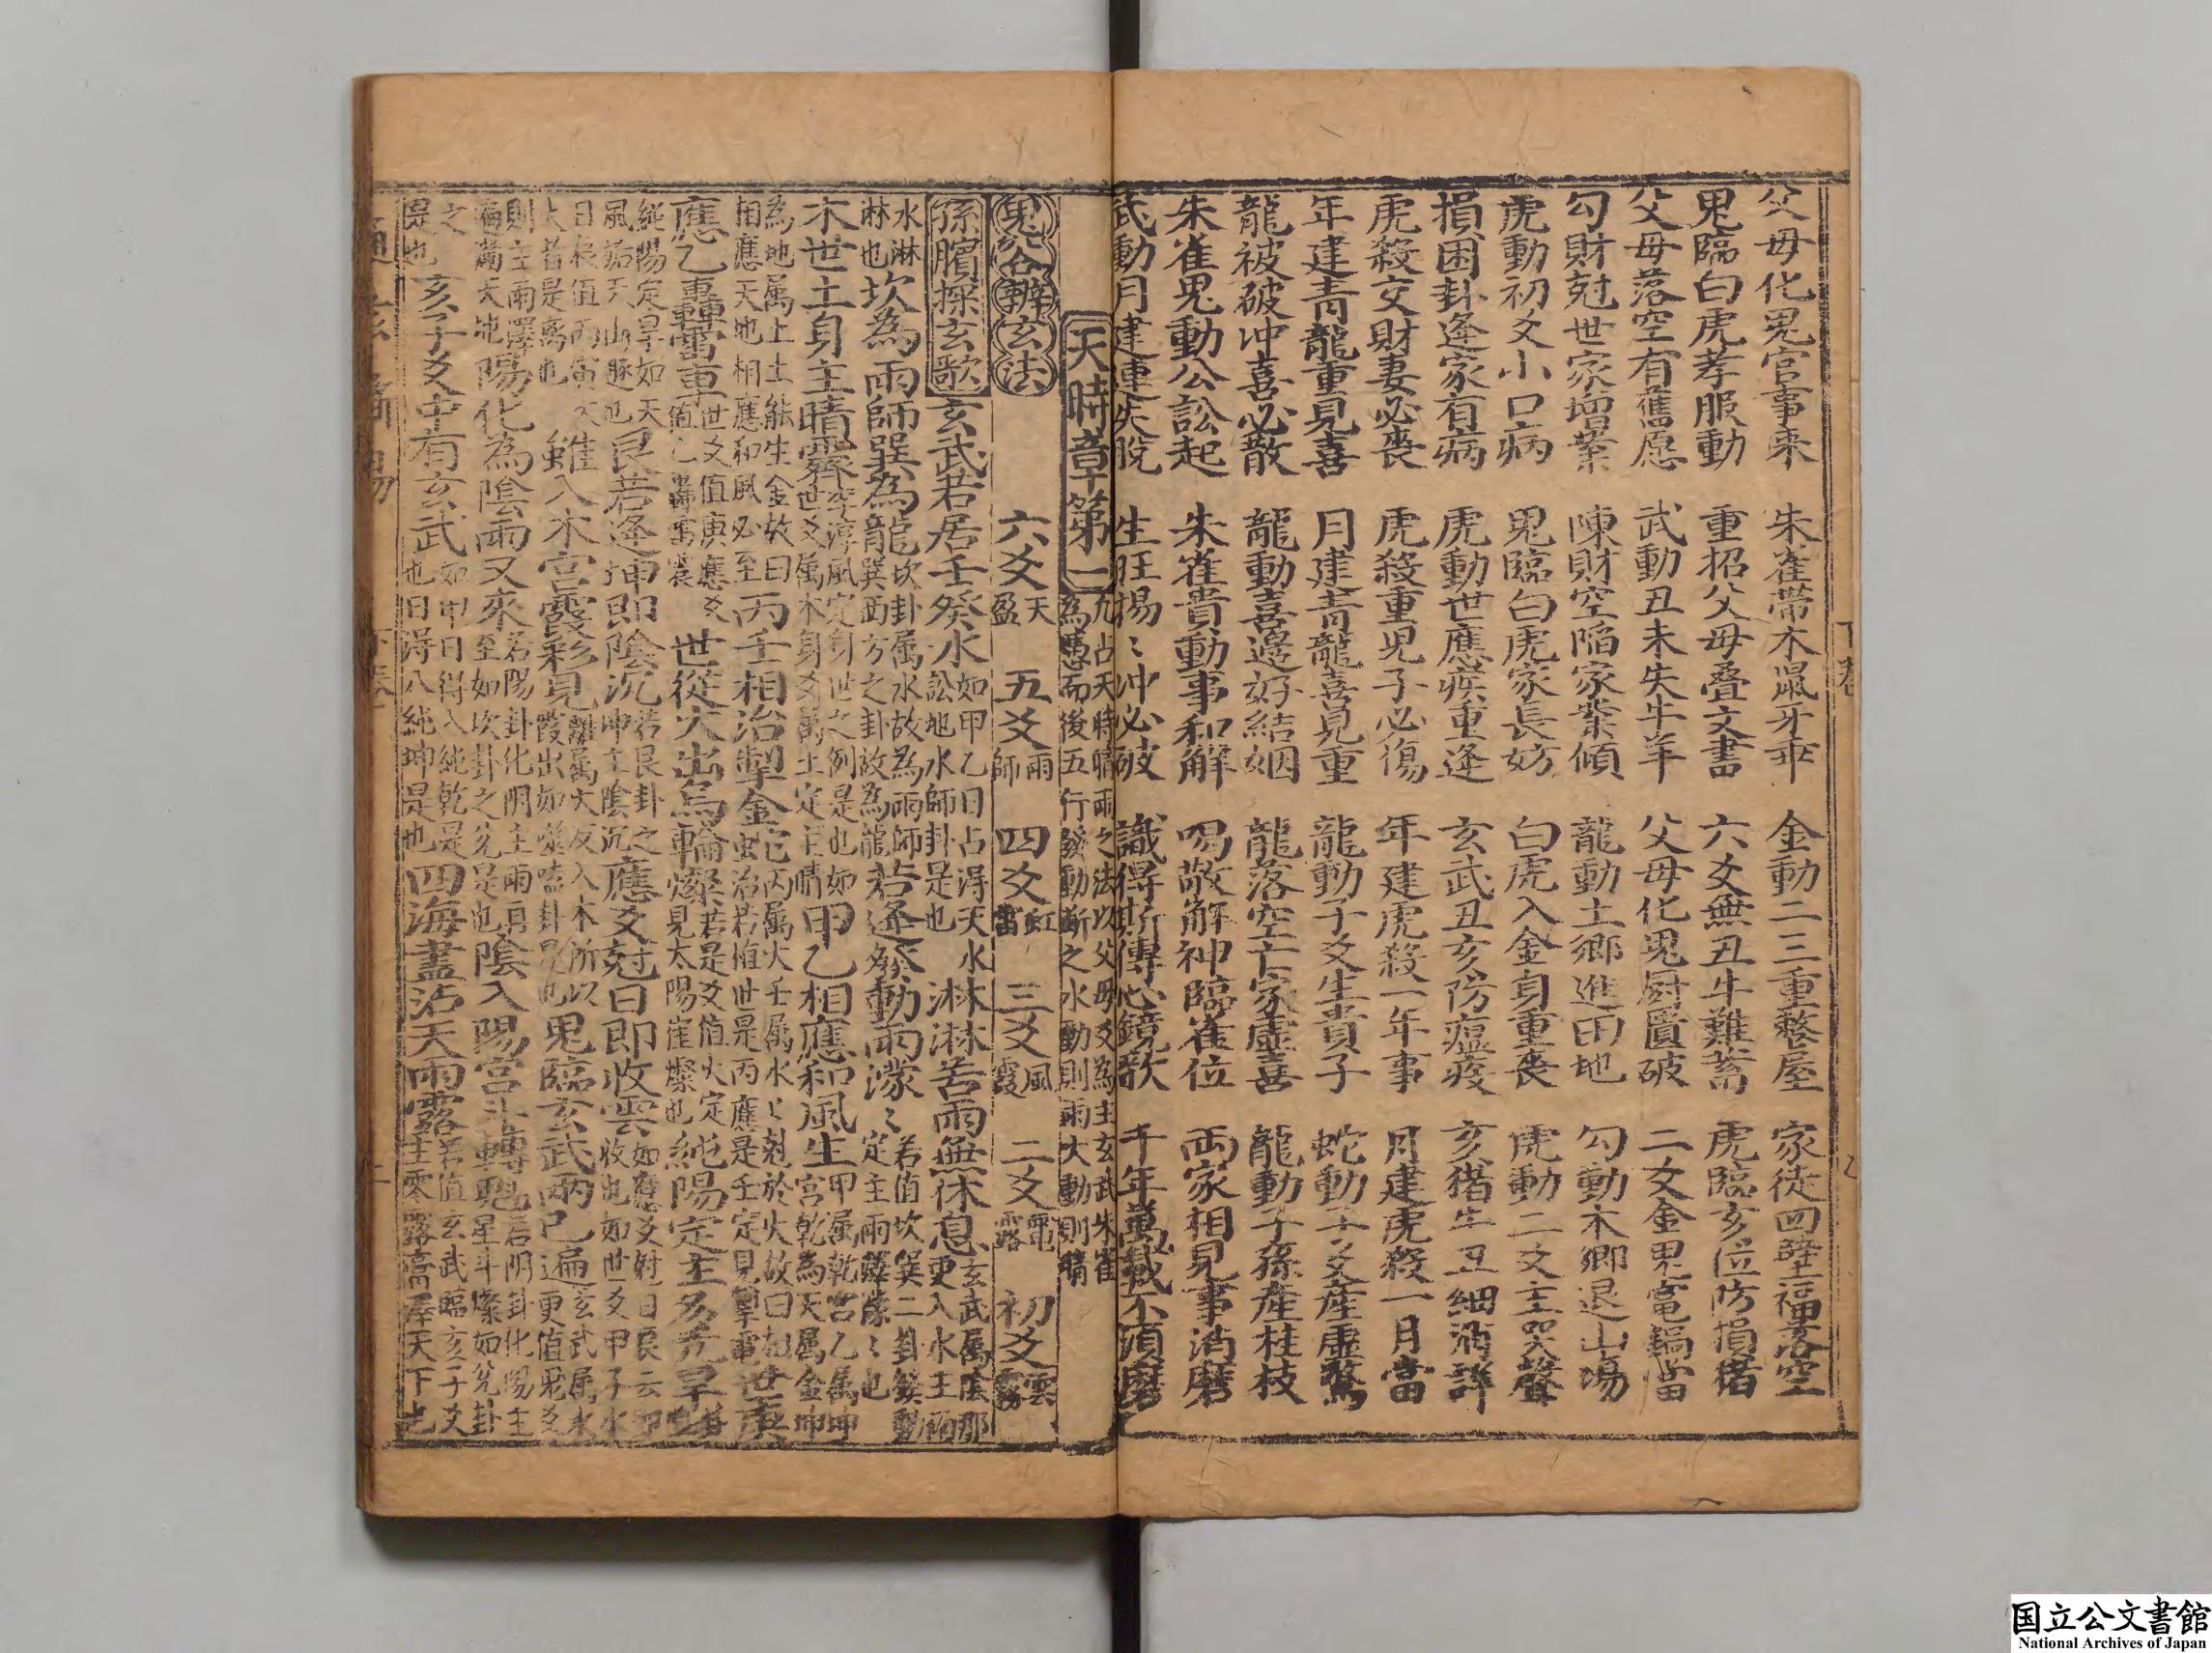 父母化鬼官事來　朱雀帶木鼠牙乖　金動二三重整屋　家徒四壁福落空
鬼臨白虎孝服動　重招父母疊文書　六爻無丑牛難蓄　虎臨亥位防損猪
父母落空有舊愿　武動丑未失牛羊　父母化鬼厨匱破　二爻金鬼竃鍋當
勾財尅世家增業　陳財空陷家業傾　龍動土鄉進田地　勾動木鄉退山場
虎動初爻小口病　鬼臨白虎家長妨　白虎入金身重喪　虎動二爻主哭聲
損困卦逢家有病　虎動世應疾重逢　玄武丑亥防瘟疫　亥猪牛丑細消詳
虎殺交財妻必喪　虎殺重兒子必傷　年建虎殺一年事　月建虎殺一月當
年建青龍重見喜　月建青龍喜見重　龍動子爻生貴子　蛇動子爻産虛驚
龍被破冲喜必散　龍動喜邊好結姻　龍落空亡家虛喜　龍動子孫産桂枝
朱雀鬼動公訟起　朱雀貴動事和解　喝散解神臨雀位　兩家相見事消磨
武動月建連失脫　生旺揚〻冲必破　識得斯傳心鏡歌　千年萬載不須磨
天時章第二
凡占天時晴雨之法以父母爻為主玄武朱雀
為憑而後五行發動斷之水動則雨火動則晴
鬼谷辨玄法　六爻天盈　五爻雨師　四爻虹雷　三爻風霞　二爻電露　初爻雲霧
孫臏探玄歌　玄武若居壬癸水如甲乙日占得天水訟地水師卦是也　淋淋苦雨無休息玄武屬陰那更入水主雨
水淋淋也　坎為雨師巽為龍坎卦屬水故為雨師巽西方之卦故為龍　若逢發動雨濛〻若值坎巽二卦發動定主雨濛〻也
木世土身主晴霽李淳風定身世之例是也如世爻屬木身爻屬土定主晴　甲乙相應和風生甲屬乾宮乙屬坤宮乾為天屬金坤
為地屬土土能生金故曰相應天地相應和風必至　丙壬相治掣金蛇丙屬火壬屬水〻尅於火故曰相治若值世是丙應是壬定見掣電　世庚
應乙轟雷車世爻值庚應爻值乙轟雷震　世從火出烏輪燦若是爻值火定見太陽崔燦也　純陽定主多亢旱
純陽定旱如天風姤天山遯也　艮若逢坤即陰沉若艮卦之坤主陰沉　應爻尅日即收雲如應爻尅日辰云即收也如世爻甲子水
日辰值丙寅火　雖入木宮霞彩見離屬火反入木所以霞出如噬嗑卦是也　鬼臨玄武雨已遍玄武屬水更值鬼爻
則主雨澤遍滿天地　陽化為陰雨又來若陽卦化阴主雨再至如坎卦之兌是也　陰入陽宮斗轉魁若阴卦化陽主星斗燦如兌卦
之　亥子爻中有玄武如甲日得入純乾是也日得八純坤是也　四海盡沾天雨露若值玄武臨亥子爻主零露䨱天下也
是也
下卷